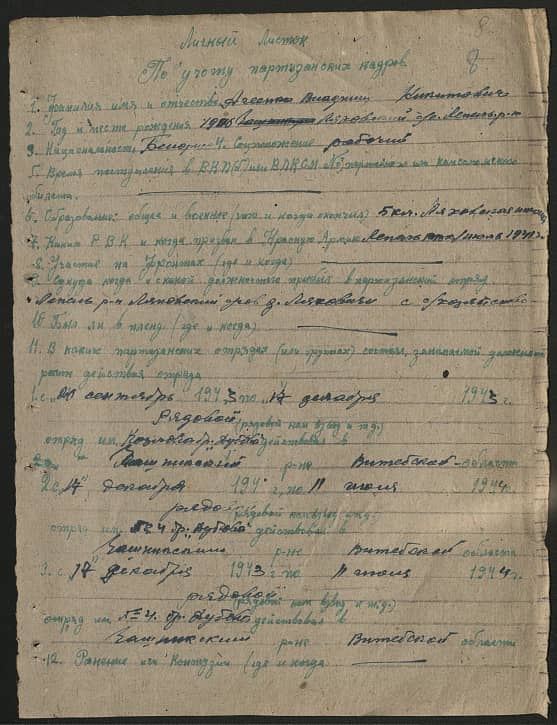 8
8
Личный Листок
По учету партизанских кадров
1. Фамилия имя и отчество Агеенко Владимир Никитович
2. Год и место рождения 1926 Ляховский с/с Лепельс. р-н
3. Национальность Белорус 4. Соцположение рабочий
5. Время поступления в ВКП(б) или ВЛКСМ № партийного или комсомольского
билета.
6. Образование: общее и военное (что и когда окончил) 5 кл. Ляховская
7. Каким Р.В.К и когда призван в Красную Армию Лепель июль 1941 г.
8. Участие на фронтах (где и когда)
9. Откуда когда и с какой должностью прибыл в партизанский отряд
Лепель р-н Ляховский д. Ляховичи с с/хозяйства
10. Был ли в плену (где и когда)
11. В каких партизанских отрядах (или группах) состоял, занимаемой должности
район действия отряда
1. с " сентябрь 1943 по "17 декабря 1943 г.
Рядовой (рядовой ком взвод и т.д.)
отряд им. бр. Дубова действовал в
Чашникский р-не Витебской области
2. с "17" декабря 194 г. по 11 июля 1944
рядовой (рядовой ком взвод отд.
отряд им № 4 бр. Дубова действовал в
Чашникский р-не Витебской области
3. с "17 декабря 1943 г. по 11 июля 1944 г.
рядовой (рядовой ком взвод и т.д.)
отряд им № 4. бр. Дубова действовал в
Чашникский р-не Витебской области
12. Ранение или Контузии (где и когда